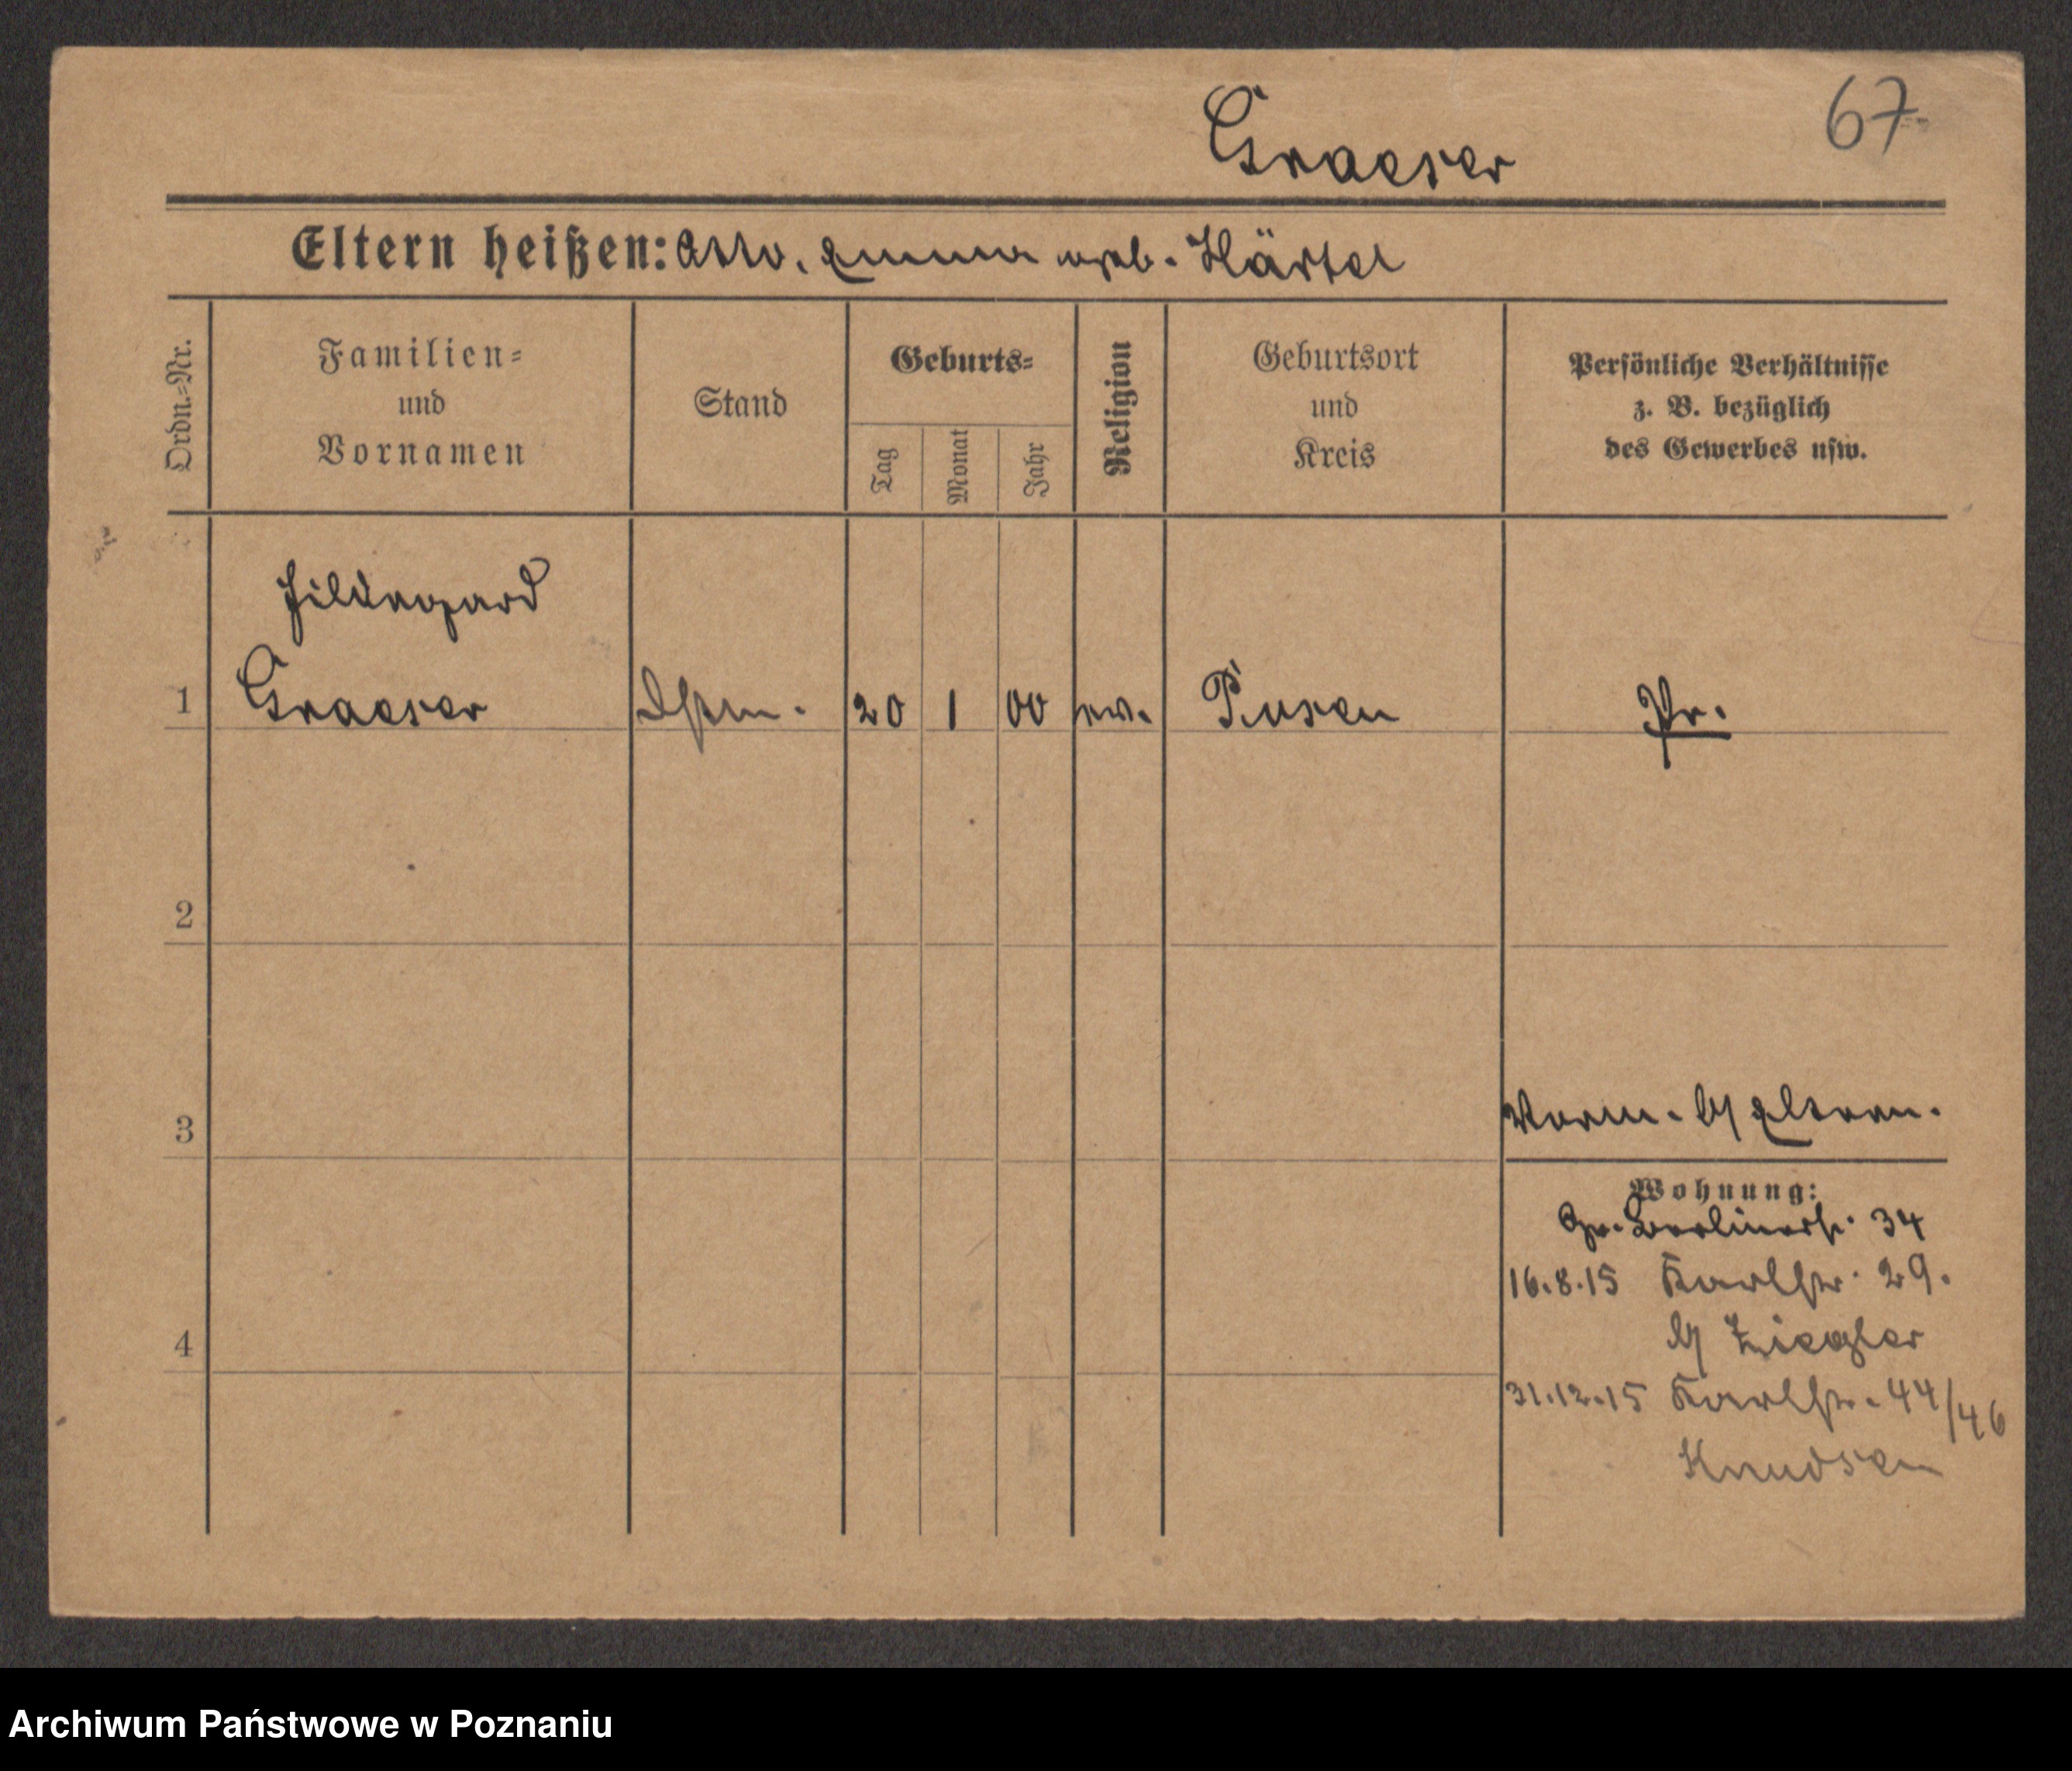 67
Graeser
Eltern heißen: Otto, Emma geb. Härtel
Ordn.=Nr.
Familien=
und
Vornamen
Stand
Geburts=
Tag
Monat
Jahr
Religion
Geburtsort
und
Kreis
Persönliche Verhältnisse
z. B. bezüglich
des Gewerbes usw.
Hildegard
1 Graeser 20 1 00 ev. Posen Pr.
2
3
Vorm. b/ Eltern.
Wohnung:
Gr. Berlinerstr. 34
16.8.15 Karlstr. 29.
b/ Ziegler
4
31.12.15 Karlstr. 44/46
Knudsen
Archiwum Państwowe w Poznaniu